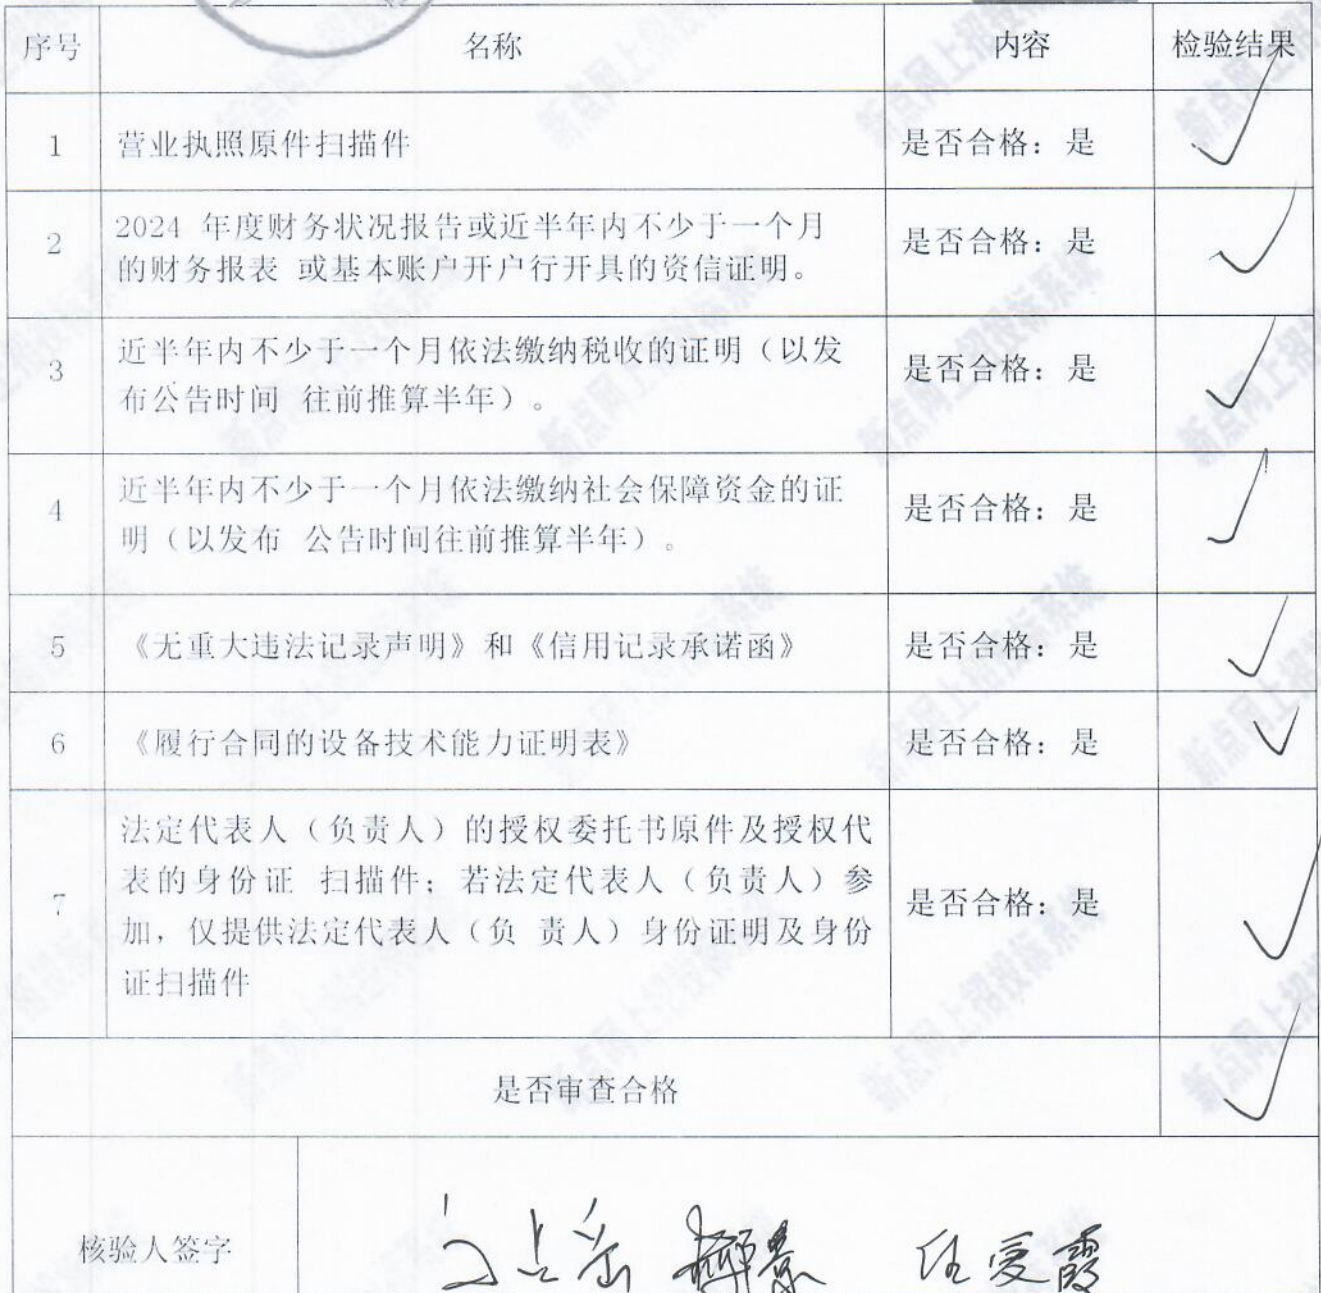 序号 名称 内容 检验结果
1 营业执照原件扫描件 是否合格：是 ✓
2024 年度财务状况报告或近半年内不少于一个月
2 的财务报表 或基本账户开户行开具的资信证明。 是否合格：是 ✓
近半年内不少于一个月依法缴纳税收的证明（以发
3 布公告时间 往前推算半年）。 是否合格：是 ✓
近半年内不少于一个月依法缴纳社会保障资金的证
4 明（以发布 公告时间往前推算半年）。 是否合格：是 ✓
5 《无重大违法记录声明》和《信用记录承诺函》 是否合格：是 ✓
6 《履行合同的设备技术能力证明表》 是否合格：是 ✓
法定代表人（负责人）的授权委托书原件及授权代
表的身份证 扫描件；若法定代表人（负责人）参
7 加，仅提供法定代表人（负 责人）身份证明及身份 是否合格：是 ✓
证扫描件
是否审查合格 ✓
核验人签字 任爱霞
新点网上招投标系统